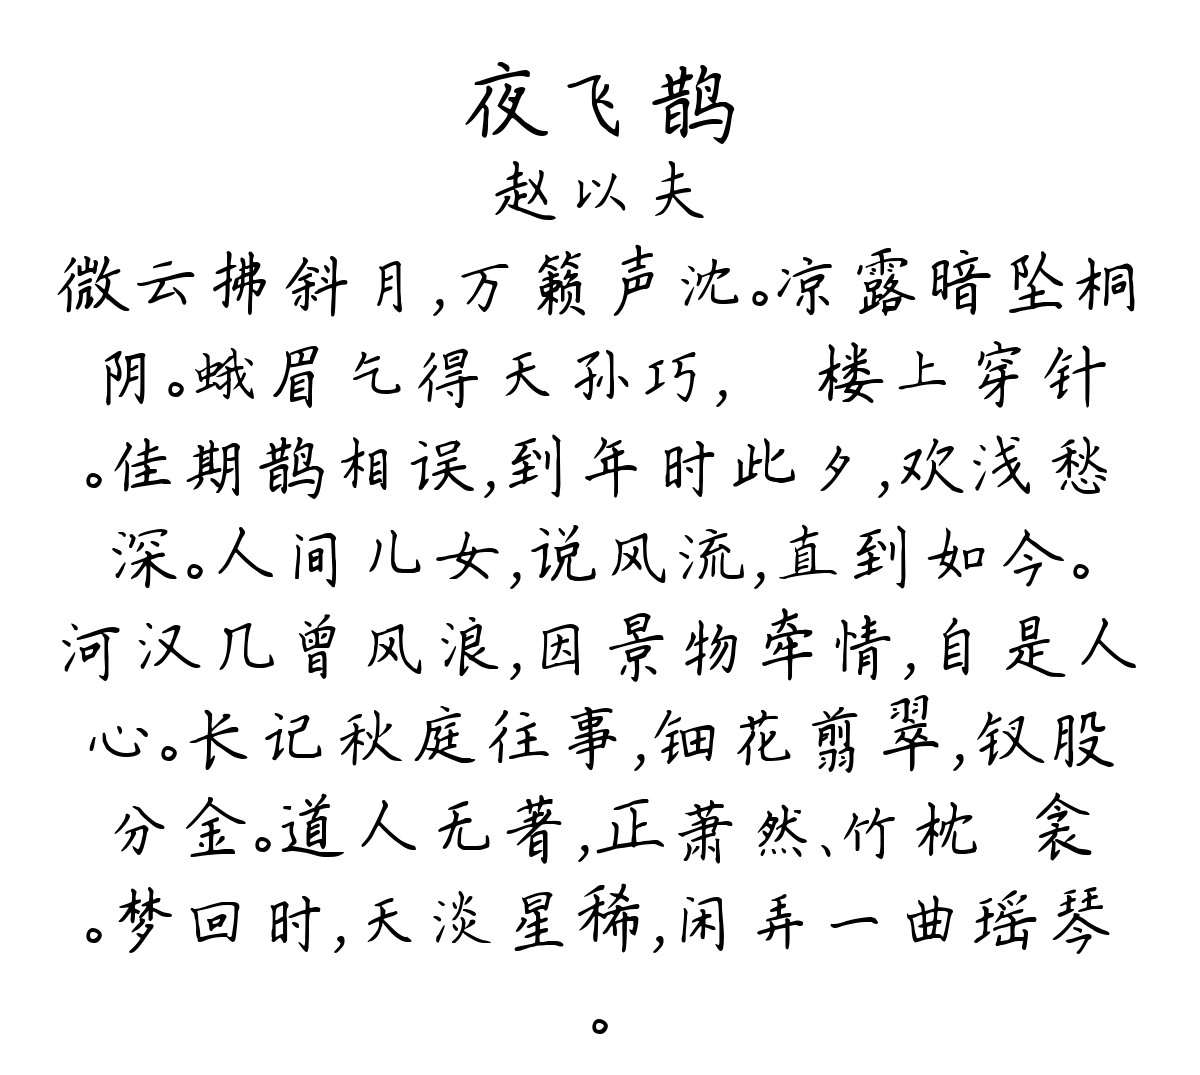 夜飞鹊
赵以夫
微云拂斜月,万籁声沈。凉露暗坠桐
阴。蛾眉乞得天孙巧, 楼上穿针
。佳期鹊相误,到年时此夕,欢浅愁
深。人间儿女,说风流,直到如今。
河汉几曾风浪,因景物牵情,自是人
心。长记秋庭往事,钿花翦翠,钗股
分金。道人无著,正萧然、竹枕 衾
。梦回时,天淡星稀,闲弄一曲瑶琴
。